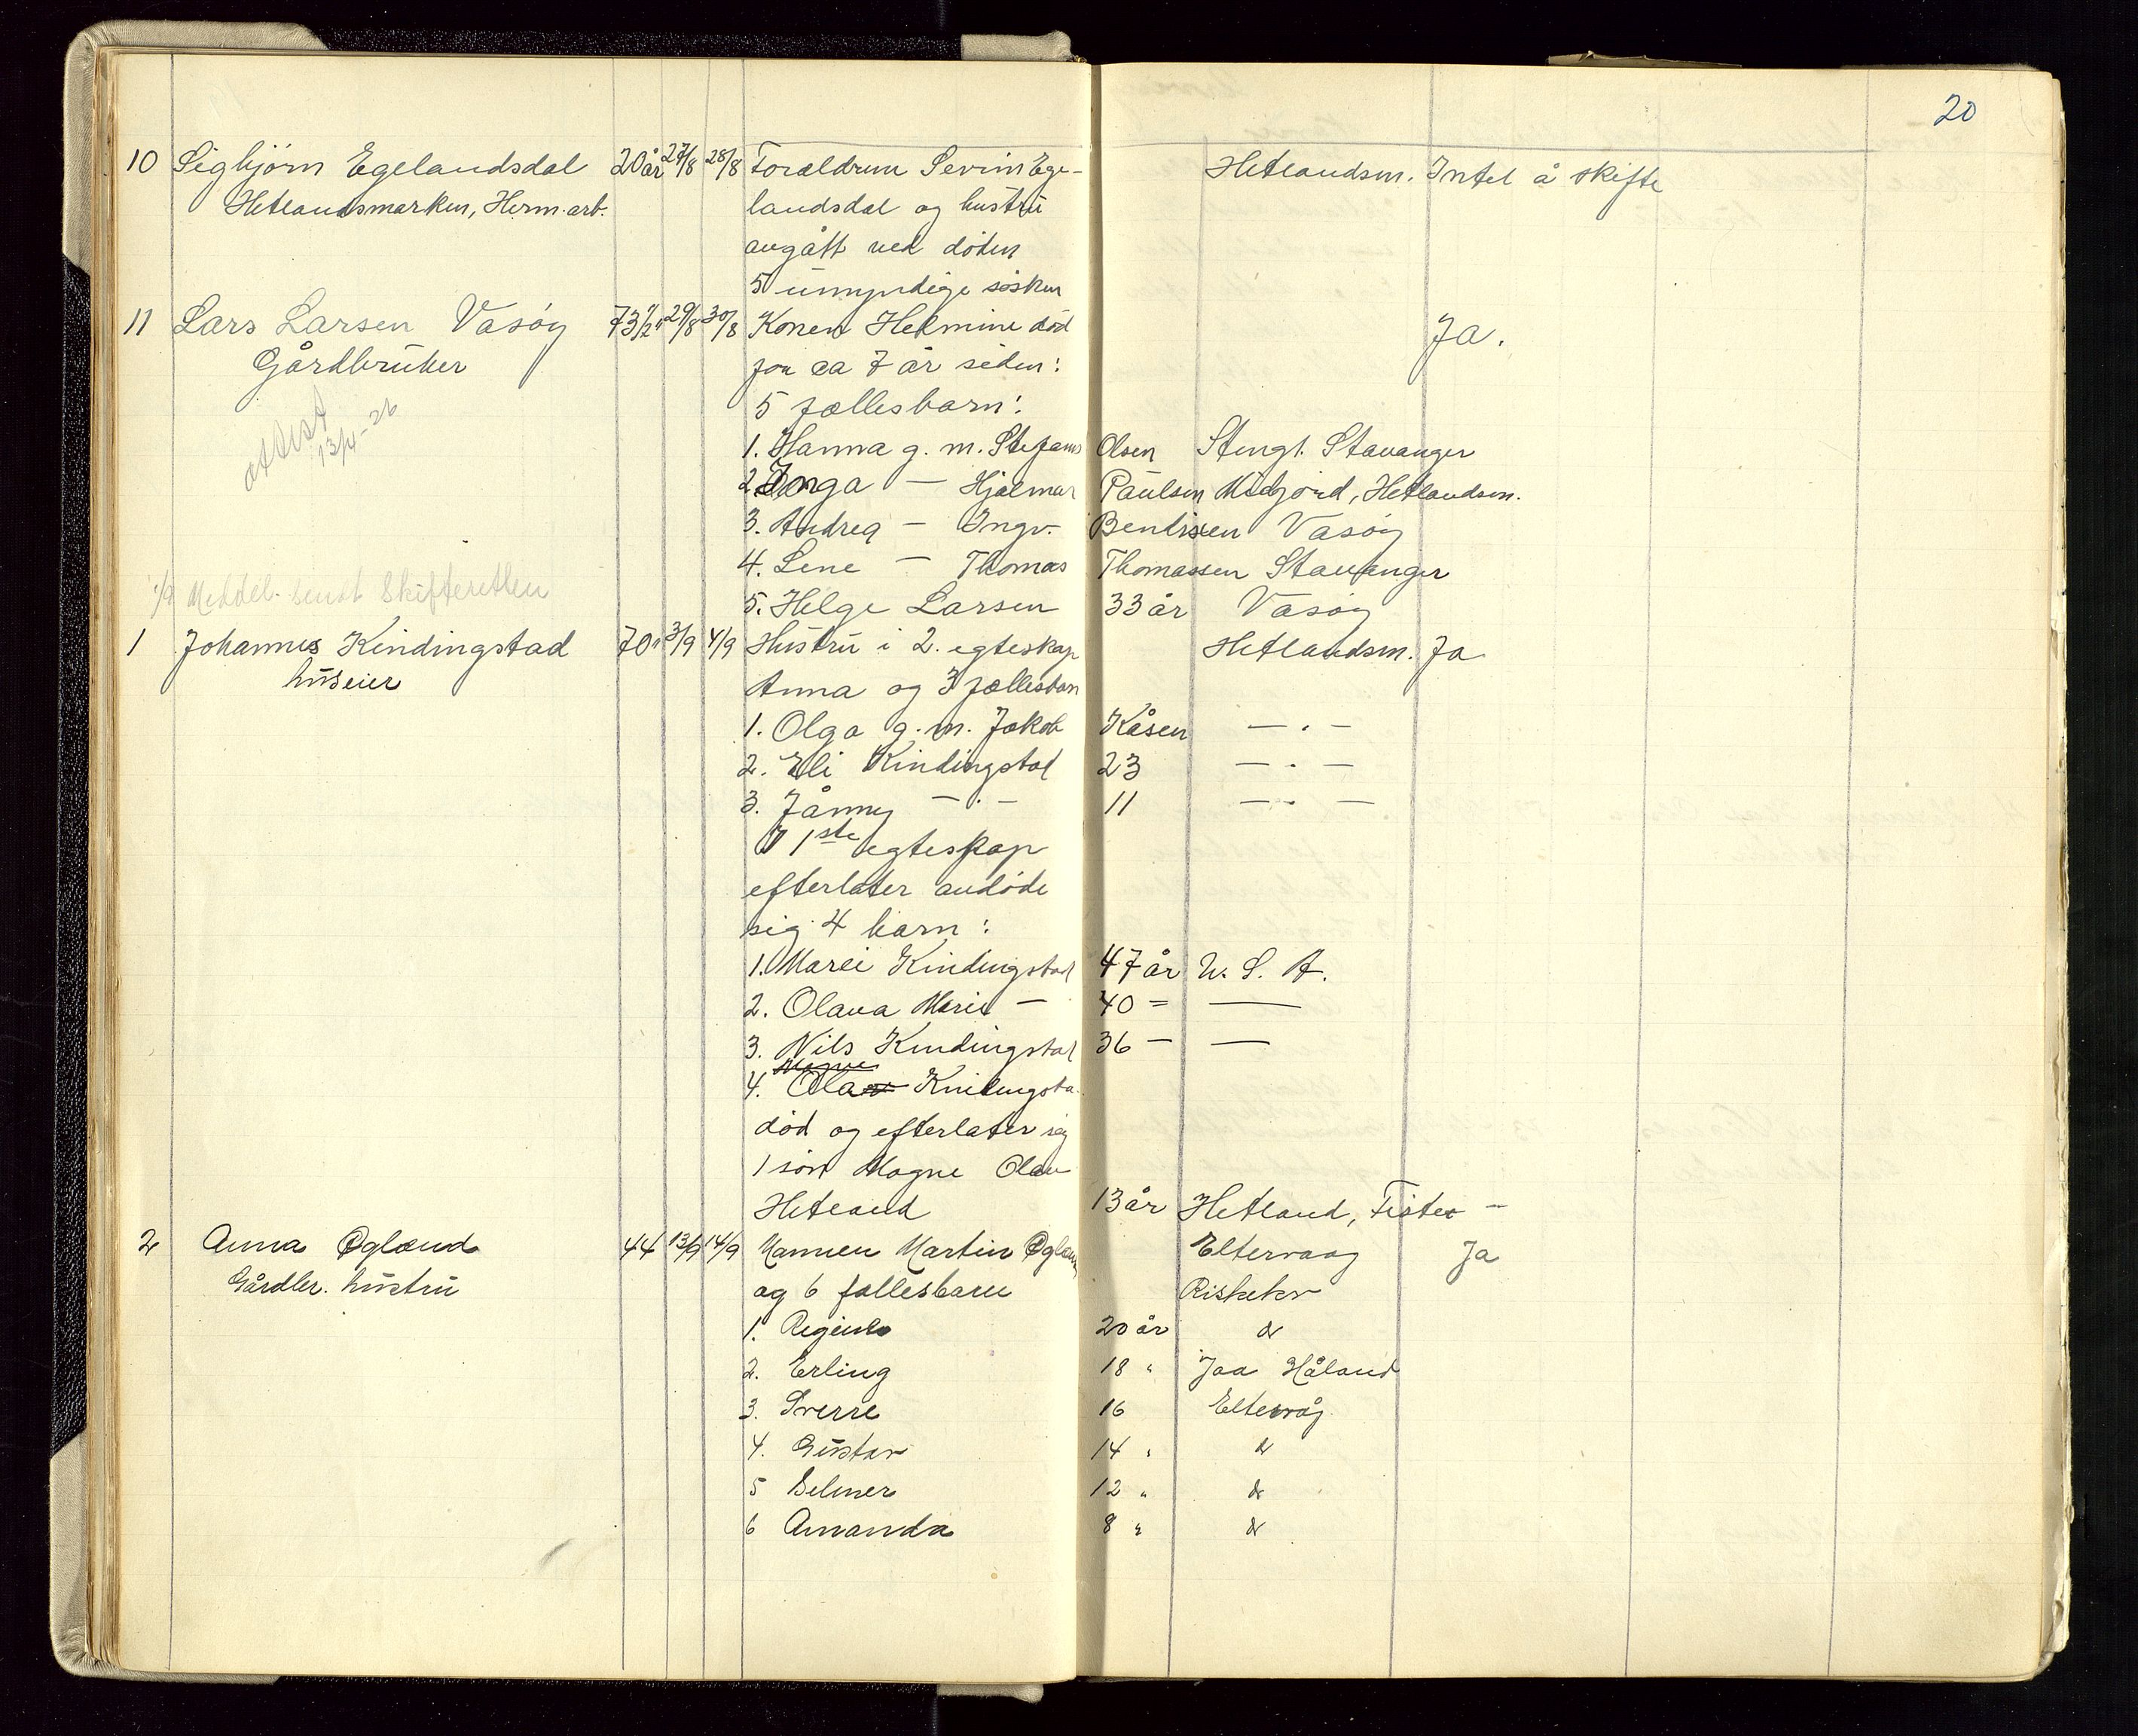 20
10 Sigbjörn Egelandsdal 20 år 27/8 28/8 Forældrun Severin Ege- Hetlandsm. Intet å skifte
Hetlandsmarken, Herm. arb. landsdal og hustru
avgått ved döden
5 umyndige sösken
11 Lars Larsen Vasöy 73 1/2 " 29/8 30/8 Konen Helmine död Ja.
Gårdbruker for ca 7 år siden:
5 fællesbarn:
attest 13/4-26
1. Hanna g. m. Stefanus Olsen Stengt. Stavanger
2. Torga — Hjalmar Paulsen Midjord, Hetlandsm.
3. Andrea — Ingv. Bentsen Vasöy
4. Lene — Thomas Thomassen Stavanger
1/9 Meddel. sendt Skifteretten
5. Helge Larsen 33 år Vasöy
1 Johannes Kindingstad 70 " 3/9 4/9 Hustru i 2. egteskap Hetlandsm. Ja
huseier Anna og 3 fællesbarn
1. Olga g. m. Jakob Kåsen — . —
2. Eli Kindingstad 23 — . —
3. Jånny — . — 11 — . —
I 1ste egteskap
efterlater avdöde
sig 4 barn:
1. Marei Kindingstad 47 år U. S. A.
2. Olava Marie — 40 = —
3. Nils Kindingstad 36 — —
Magne
4. Olav Kindingsta
död og efterlater sig
1 sön Magne Olav
Hetland 13 år Hetland, Fister —
2 Anna Øgland 44 13/9 14/9 Mannen Martin Øgland Eltervaag Ja
Gårdbr. hustru og 6 fællesbarn Riskekv
1. Regine 20 år do
2. Erling 18 " Jaa Håland
3. Sverre 16 Eltervåg
4. Gustav 14 " do
5 Selmer 12 " do
6 Amanda 8 " do